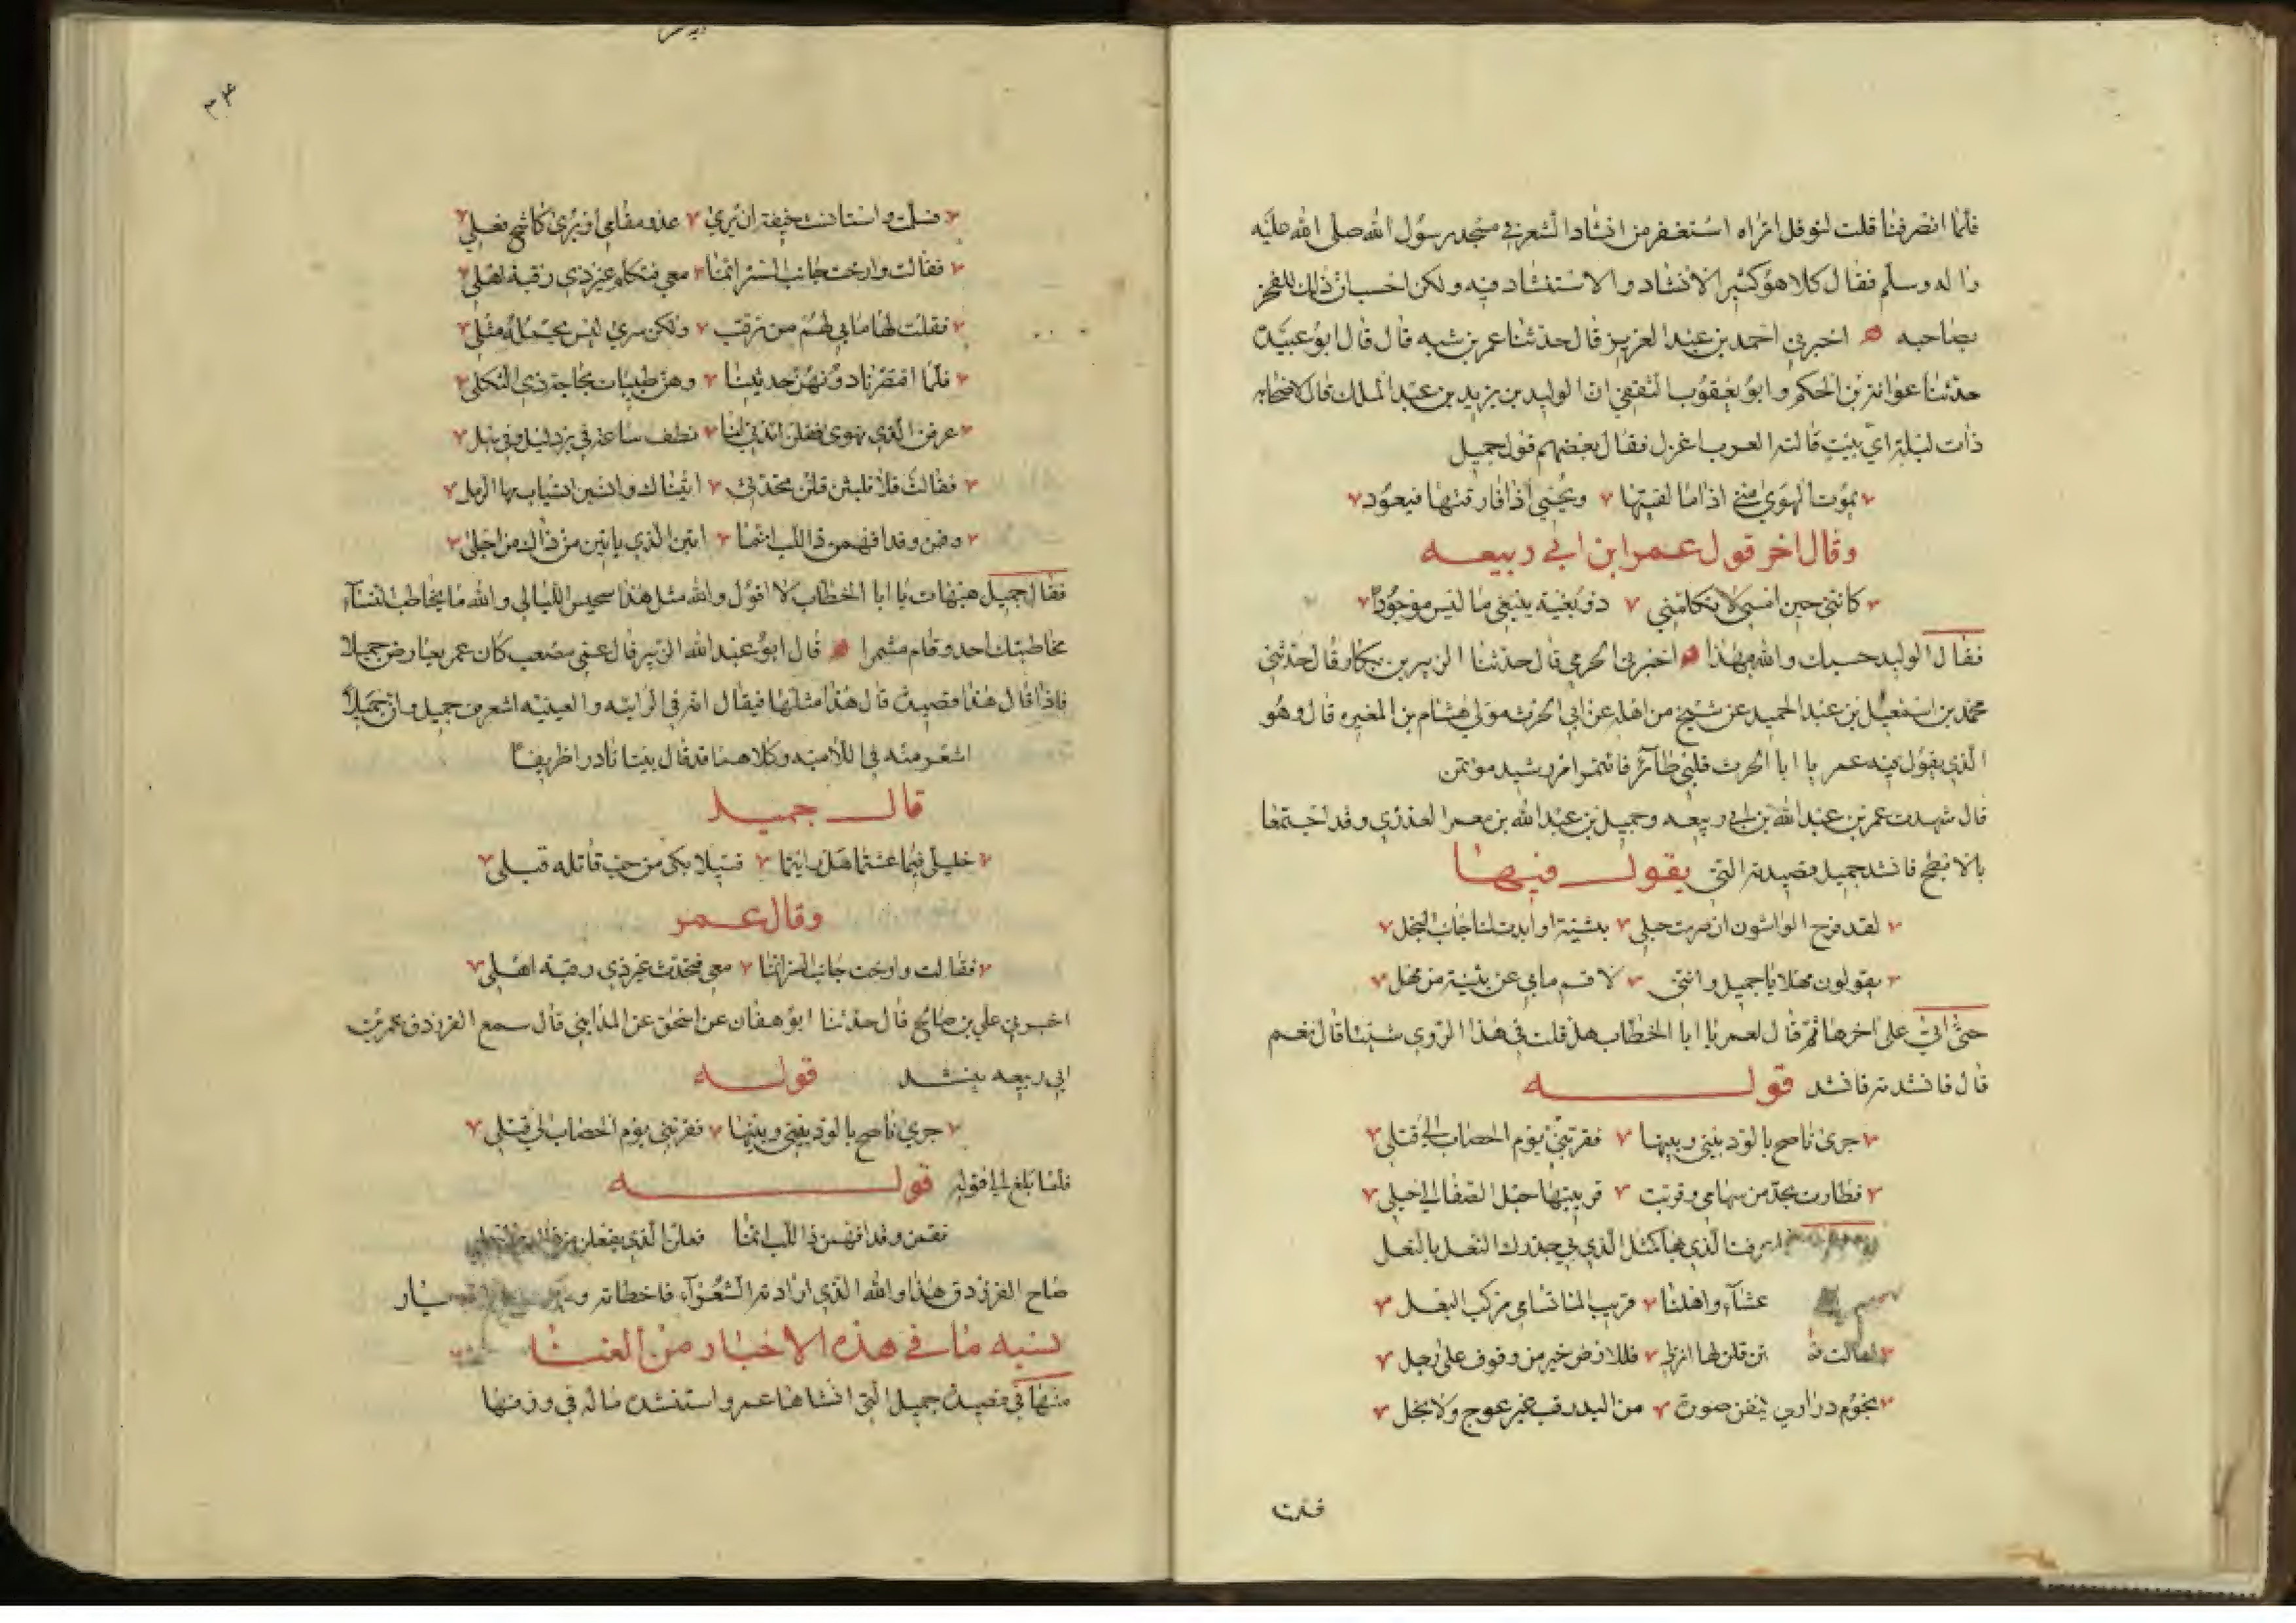 فلما انصرفنا قلت لنوفل اتراه استغفر من انشاد الشعر في مسجد رسول الله صلى الله عليه
واله وسلم فقال كلا هو كثير الانشاد والاستنشاد فيه ولكن احسب ان ذلك للفخر
بصاحبه اخبرني احمد بن عبد العزيز قال حدثنا عمر بن شبه قال قال ابو عبيدة
حدثنا عوانة بن الحكم وابو يعقوب الثقفي ان الوليد بن يزيد بن عبد الملك قال لاصحابه
ذات ليلة اي بيت قالته العرب اغزل فقال بعضهم قول جميل
يموت الهوى مني اذا ما لقيتها ويحيي اذا فارقتها فيعود
وقال اخر قول عمر ابن ابي ربيعه
كانني حين امسي لا تكلمني ذو بغية يبتغي ما ليس موجودا
فقال الوليد حسبك والله بهذا اخبرني الحرمي قال حدثنا الزبير بن بكار قال حدثني
محمد بن اسمعيل بن عبد الحميد عن شيخ من اهله عن ابي الحرث مولى هشام بن المغيره قال وهو
الذي يقول فيه عمر يا ابا الحرث قلبي طائر فائتمر امر رشيد موتمن
قال شهدت عمر بن عبد الله بن ابي ربيعه وجميل بن عبد الله بن معمر العذري وقد اجتمعا
بالابطح فانشد جميل قصيدته التي يقول فيها
لقد فرح الواشون ان صرمت حبلي بثينة او ابدت لنا جانب البخل
يقولون مهلا يا جميل وانني لاقسم مابي عن بثينة من مهل
حتى اتى على اخرها ثم قال لعمر يا ابا الخطاب هل قلت في هذا الروي شيئا قال نعم
قال فانشدنيه فانشد قوله
جرى ناصح بالود بيني وبينها فقربني يوم الحصاب الى قتلي
فطارت بحد من سهامي وقربت قريبتها حبل الصفاء الى حبلي
عرفت الذي بها كمثل الذي بي حذوك النعل بالنعل
عشاء واهلنا قريب الما تسامي مركب البغل
فقالت فما بن قلن لها انزلي فللارض خير من وقوف على رجل
نجوم دراري تكنفن صورة من البدر وافت غير عوج ولا بخل
فسلت
٣٤
فسلمت واستانست خيفة ان يرى عدو مقامي او يرى كاشح فعلي
فقالت وارخت جانب الستر انما معي فتكلم غير ذي رقبة اهلي
فقلت لها مابي لهم من ترقب ولكن سري ليس يحمله مثلي
فلما اقتصرنا دونهن حديثنا وهن طبيبات بحاجة ذي التكلي
عرفن الذي نهوى فقلن ائذني لنا نطف ساعة في برد ليل وفي سهل
فقالت فلا تلبثن قلن تحدثي اتيناك وانسبن انسياب مها الرمل
وقمن وقد افهمن ذا اللب انما اتين الذي ياتين من ذاك من اجلي
فقال جميل هيهات يا ابا الخطاب لا اقول والله مثل هذا سجيس الليالي والله ما يخاطب النساء
مخاطبتك احد وقام مشمرا قال ابو عبد الله الزبير قال عمي مصعب كان عمر يعارض جميلا
فاذا قال هذا قصيدة قال هذا مثلها فيقال انه في الرائيه والعينيه اشعر من جميل وان جميلا
اشعر منه في اللاميه وكلاهما قد قال بيتا نادرا ظريفا
قال جميل
خليلي فيما عشتما هل رايتما قتيلا بكى من حب قاتله قبلي
وقال عمر
فقالت وارخت جانب الستر انما معي فتحدث غير ذي رقبة اهلي
اخبرني علي بن صالح قال حدثنا ابو هفان عن اسحق عن المدايني قال سمع الفرزدق عمر بن
ابي ربيعه ينشد قوله
جرى ناصح بالود بيني وبينها فقربني يوم الحصاب الى قتلي
فلما بلغ الى قوله قوله
فقمن وقد افهمن ذا اللب انما فعلن الذي يفعلن من ذاك من اجلي
صاح الفرزدق هذا والله الذي ارادته الشعراء فاخطاته
نسبه ما في هذه الاخبار من الغنا
منها في قصيدة جميل التي انشاها عمر واستنشده ماله في وزنها